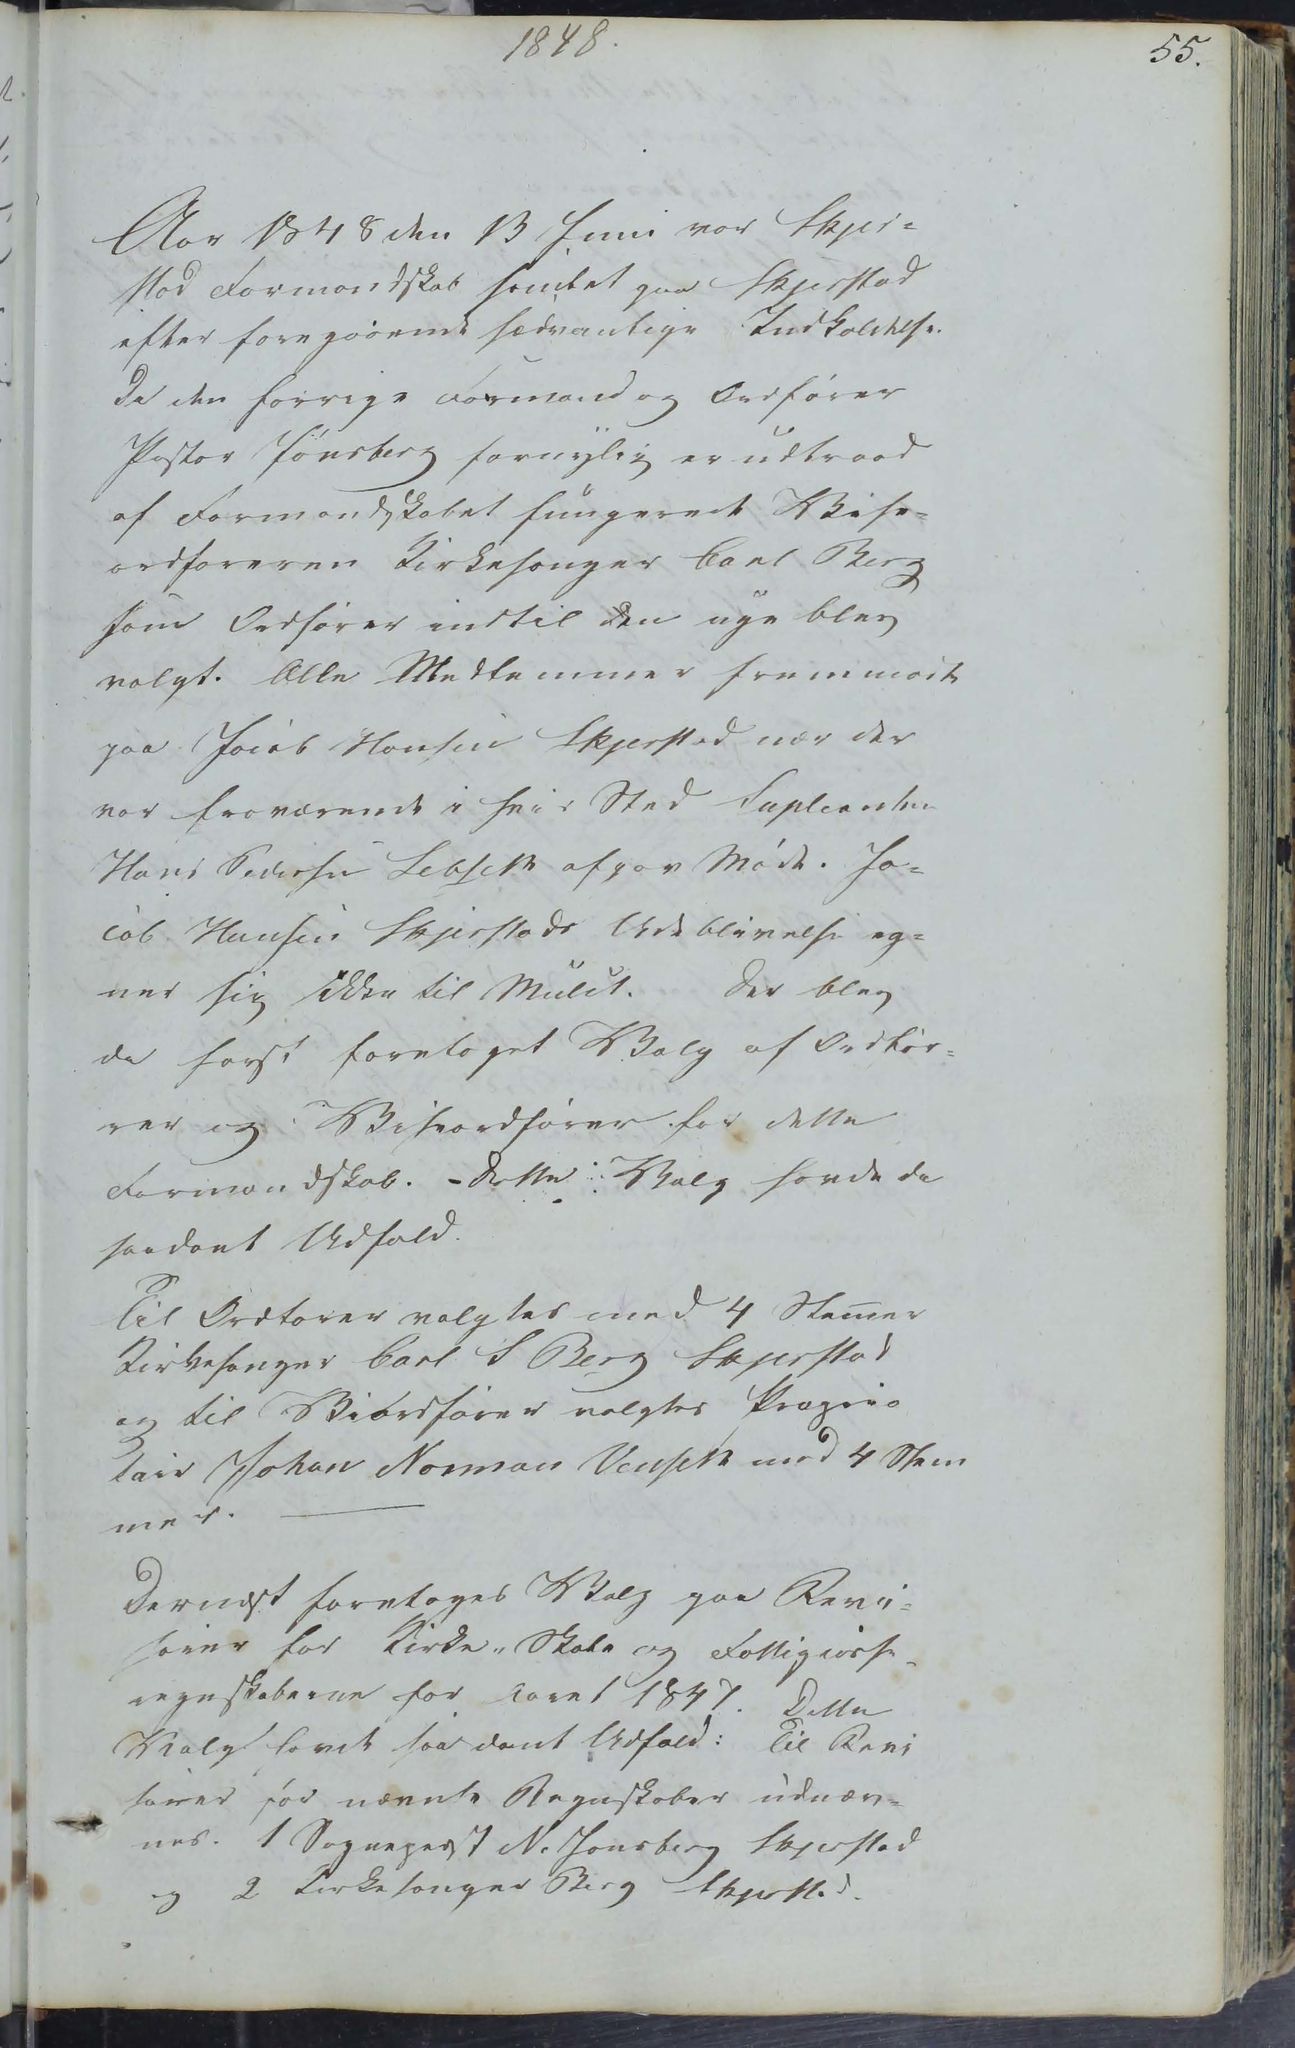 1848.
55.
Aar 1848 den 13 Juni var Skjer-
stad Formandskab samlet paa Skjerstad
efter foregaaende sædvanlige Indkaldelse.
Da den forrige Formand og Ordfører
Pastor Jønsberg fornylig er udtraad
af Formandskabet fungerede Wise-
ordføreren Kirkesanger Carl Berg
som Ordfører indtil den nye blev
valgt. Alle Medlemmer fremmødte
paa Jacob Hansen Skjerstad nær der
var fraværende i hvis Sted Supleanten
Hans Pedersen Lebesk afgav Møde. Ja-
cob Hansen Skjerstads Udeblivelse eg-
ner sig ikke til Mulct. Der blev
da først foretaget Walg af Ordfør-
rer og Wiseordfører for dette
Formandskab. - Dette Walg havde da
saadant Udfald.
Til Ordfører valgtes med 4 Stemmer
Kirkesanger Carl S Berg Skjerstad
og til Wiordfører valgtes Proprie-
tair Johan Norman Venset med 4 Stem
mer.
Dernæst foretoges Walg paa Revi-
sorer for Kirke- Skole og Fattigcasse-
regnskaberne for Aaret 1847. Dette
Walg havde saadant Udfald: Til Revi
sorer for nævnte Regnskaber udnæv-
nes. 1 Sognepræst N. Jønsberg Skjerstad
og 2 Kirkesanger Berg Skjerstad.